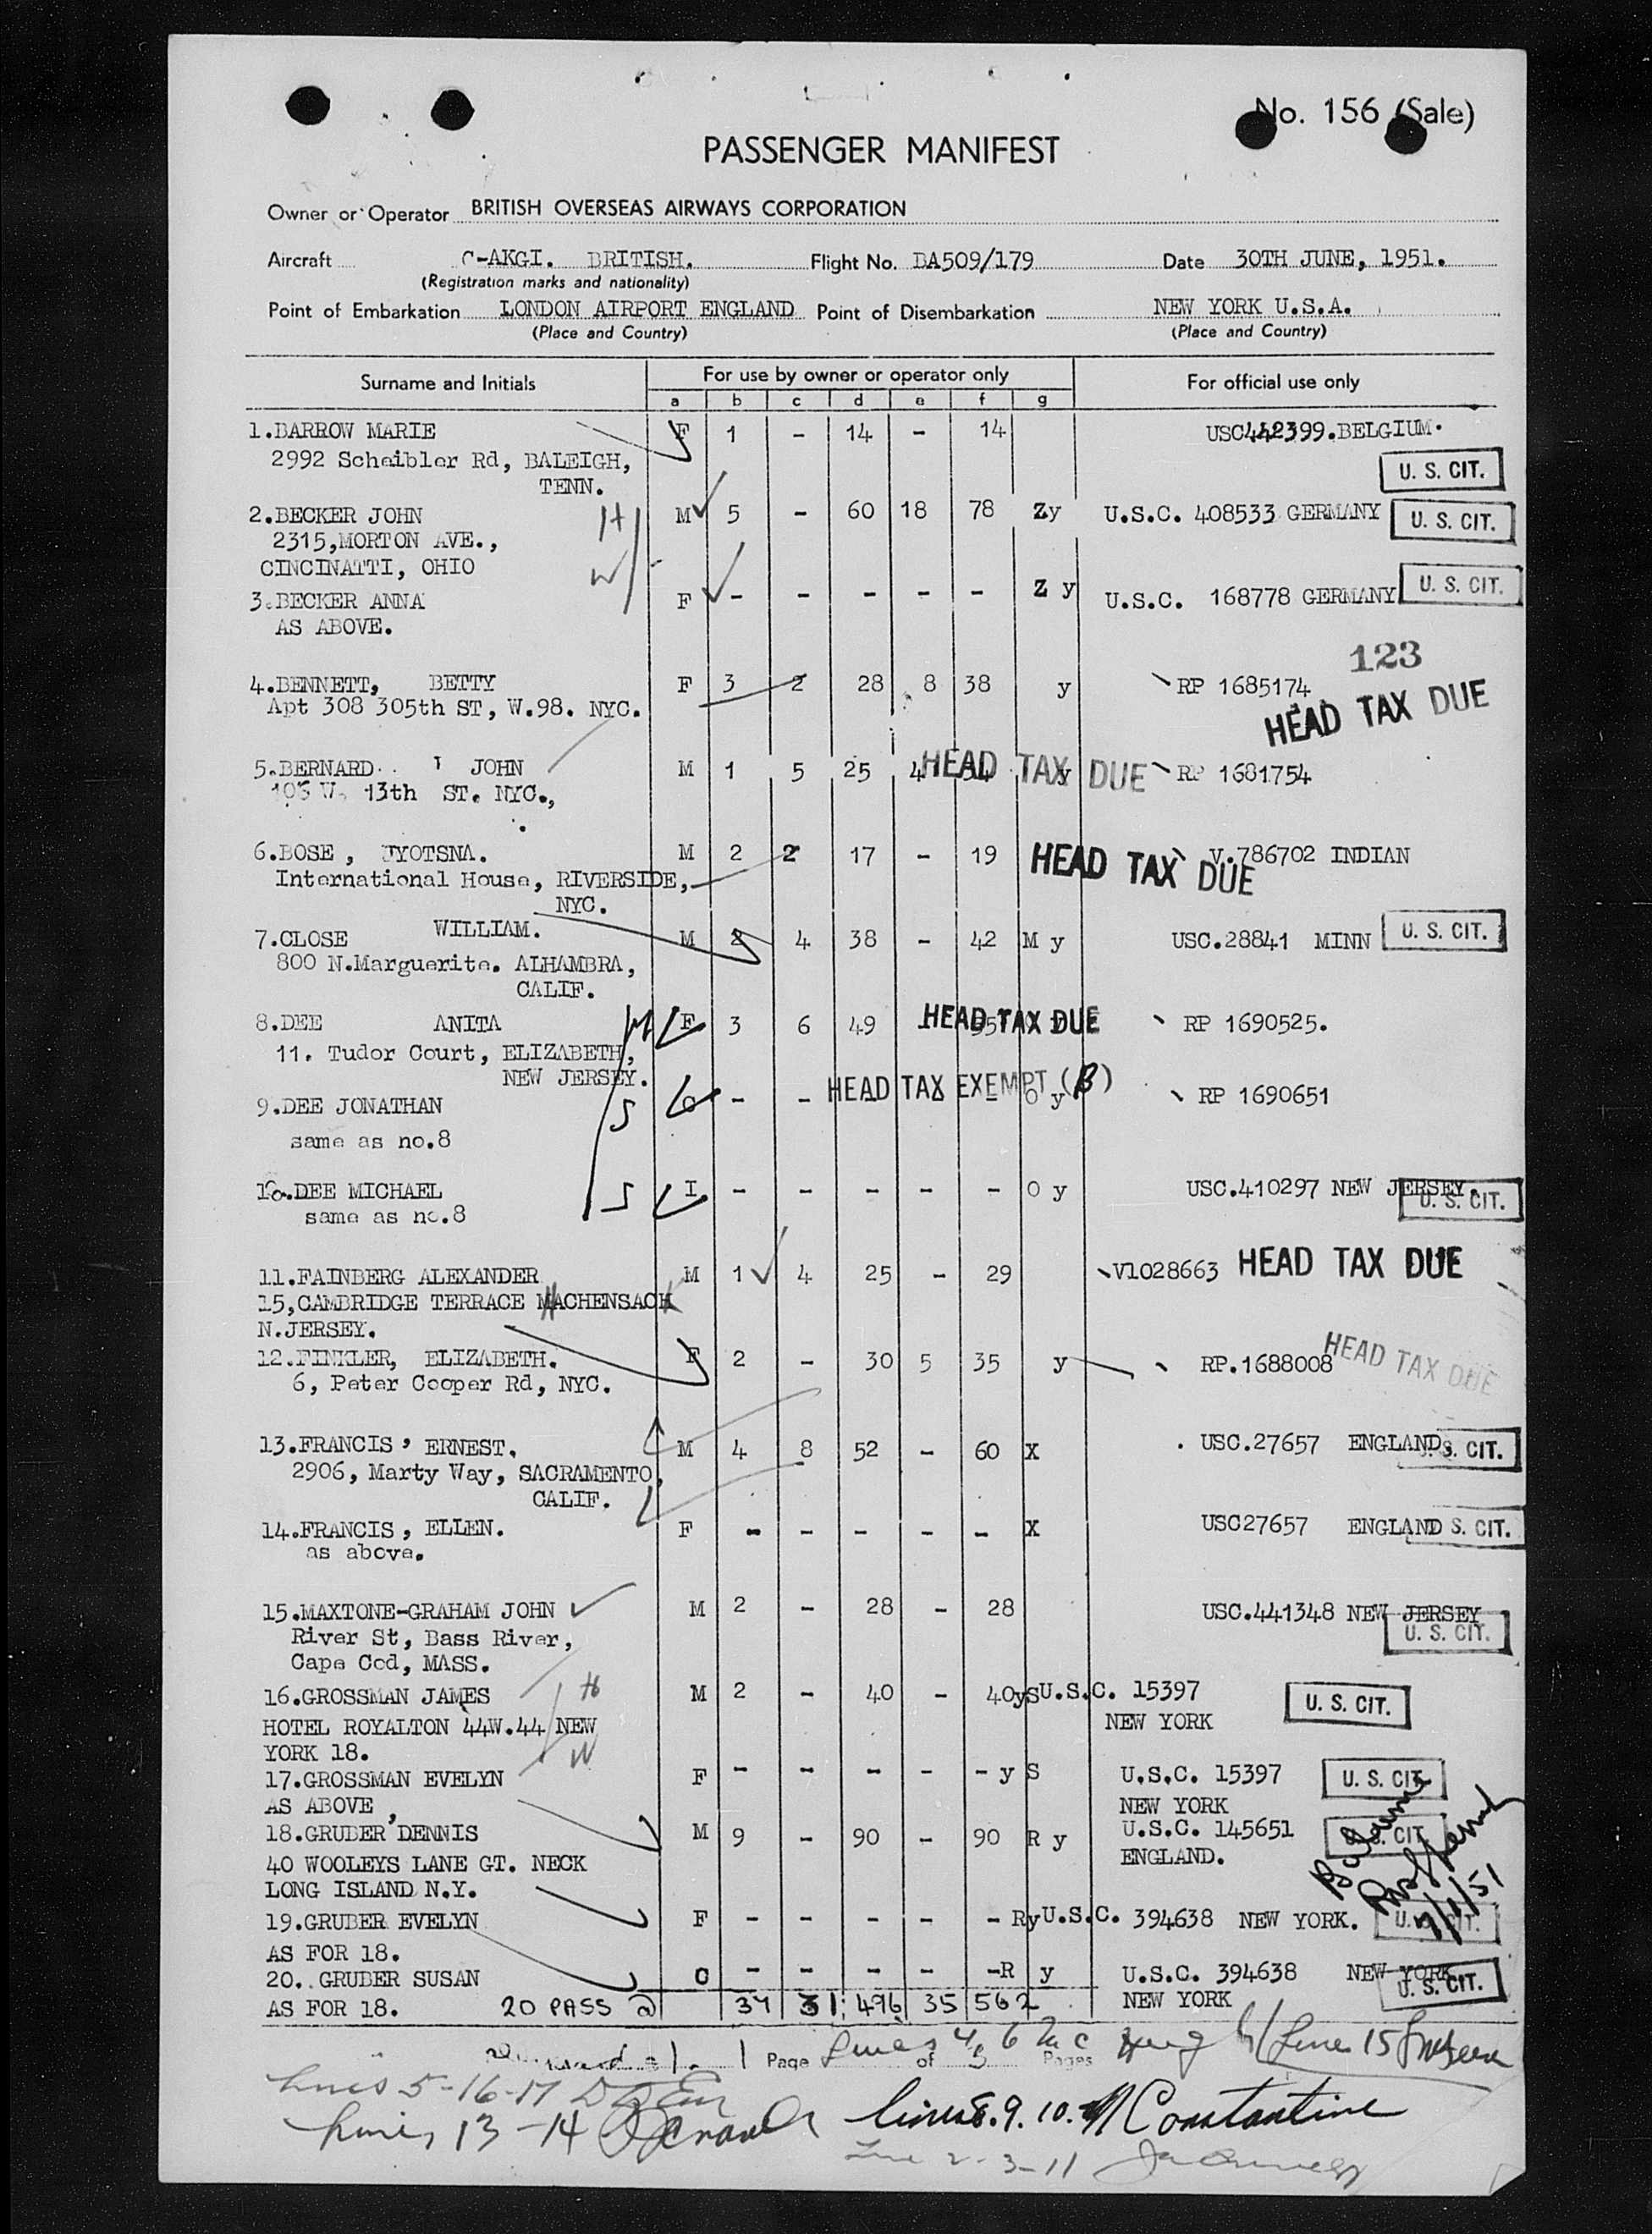 No. 156 (Sale)
PASSENGER MANIFEST
Owner or Operator BRITISH OVERSEAS AIRWAYS CORPORATION
Aircraft -AKGI. BRITISH. Flight No. BA509/179 Date 30TH JUNE, 1951.
(Registration marks and nationality)
Point of Embarkation LONDON AIRPORT ENGLAND Point of Disembarkation NEW YORK U.S.A.
(Place and Country) (Place and Country)
Surname and Initials For use by owner or operator only For official use only
a b c d e f g
1.BARROW MARIE F 1 - 14 - 14 USC442399.BELGIUM.
2992 Scheibler Rd, BALEIGH, U. S. CIT.
TENN.
2.BECKER JOHN H M 5 - 60 18 78 Zy U.S.C. 408533 GERMANY U. S. CIT.
2315,MORTON AVE.,
CINCINATTI, OHIO W
3.BECKER ANNA F - - - - - Z y U.S.C. 168778 GERMANY U. S. CIT.
AS ABOVE.
123
4.BENNETT, BETTY F 3 2 28 8 38 y RP 1685174
Apt 308 305th ST, W.98. NYC. HEAD TAX DUE
5.BERNARD JOHN M 1 5 25 4 HEAD TAX DUE y RP 1681754
13th ST. NYC.,
6.BOSE , JYOTSNA. M 2 2 17 - 19 HEAD TAX DUE V.786702 INDIAN
International House, RIVERSIDE,
NYC.
7.CLOSE WILLIAM. M 2 4 38 - 42 M y USC.28841 MINN U. S. CIT.
800 N.Marguerite. ALHAMBRA,
CALIF.
8.DEE ANITA M F 3 6 49 HEAD TAX DUE RP 1690525.
11. Tudor Court, ELIZABETH,
NEW JERSEY.
9.DEE JONATHAN S - - HEAD TAX EXEMPT (B) O y RP 1690651
same as no.8
10.DEE MICHAEL S I - - - - - O y USC.410297 NEW JERSEY. U. S. CIT.
same as no.8
11.FAINBERG ALEXANDER M 1 4 25 - 29 V1028663 HEAD TAX DUE
15,CAMBRIDGE TERRACE HACHENSACK
N.JERSEY.
12.FINKLER, ELIZABETH. F 2 - 30 5 35 y RP.1688008 HEAD TAX DUE
6, Peter Cooper Rd, NYC.
13.FRANCIS , ERNEST. M 4 8 52 - 60 X USC.27657 ENGLAND S. CIT.
2906, Marty Way, SACRAMENTO,
CALIF.
14.FRANCIS , ELLEN. F - - - - - X USC27657 ENGLAND S. CIT.
as above.
15.MAXTONE-GRAHAM JOHN M 2 - 28 - 28 USC.441348 NEW JERSEY
River St, Bass River, U. S. CIT.
Cape Cod, MASS.
16.GROSSMAN JAMES H M 2 - 40 - 40yS U.S.C. 15397 U. S. CIT.
HOTEL ROYALTON 44W.44 NEW NEW YORK
YORK 18. W
17.GROSSMAN EVELYN F - - - - - y S U.S.C. 15397 U. S. CIT.
AS ABOVE NEW YORK
18.GRUBER DENNIS M 9 - 90 - 90 R y U.S.C. 145651 U. S. CIT.
40 WOOLEYS LANE GT. NECK ENGLAND.
LONG ISLAND N.Y.
19.GRUBER EVELYN F - - - - - Ry U.S.C. 394638 NEW YORK. U. S. CIT.
AS FOR 18. 7/1/51
20. GRUBER SUSAN C - - - - -R y U.S.C. 394638 NEW YORK U. S. CIT.
AS FOR 18. 20 PASS 37 31 496 35 562 NEW YORK
1 Page of 3 Pages
Lines 4, 6 Line 15
Lines 5-16-17
Lines 13-14 Lines 8.9.10. Constantine
Line 2-3-11